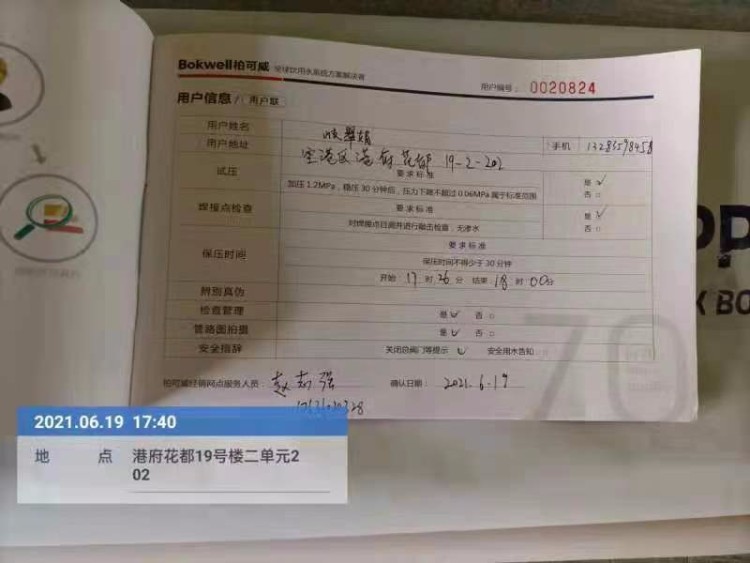 Bokwell柏可威 全球饮用水系统方案解决者
用户编号： 0020824
用户信息 / 用户联
用户姓名
用户地址 空港区港府花都 19-2-202 手机
试压 要求标准 是 ✓
加压 1.2MPa，稳压 30 分钟后，压力下降不超过 0.06MPa 属于标准范围 否 □
焊接点检查 要求标准 是 ✓
对焊接点目测并进行敲击检查，无渗水 否 □
保压时间 要求标准
保压时间不得少于 30 分钟
开始 17 时 26 分 结束 18 时 00 分
辨别真伪
检查管理 是 ✓ 否 □
管路图拍摄 是 ✓ 否 □
安全指辞 关闭总阀门等提示 ✓ 安全用水告知
柏可威经销网点服务人员： 确认日期： 2021.6.19
70
2021.06.19 17:40
地 点 港府花都19号楼二单元2
02